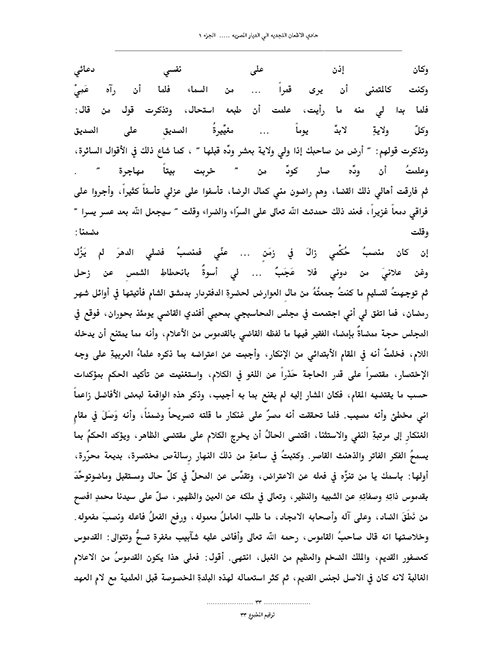 حادي الاظعان النجديه الي الديار المصريه ..... الجزء ١
وكان إذن على نفسي دعائي
وكنت كالمتمنى أن يرى قمراً ... من السماء فلما أن رآه عَمِيْ
فلما بدا لي منه ما رأيت، علمت أن طبعه استحال، وتذكرت قول من قال:
وكلّ ولايةٍ لابدّ يوماً ... مغيّيرةُ الصديقِ على الصديق
وتذكرت قولهم: " أرض من صاحبك إذا ولي ولاية بعشر ودّه قبلها " ، كما شاع ذلك في الأقوال السائرة،
وعلمتُ أن ودّه صار كودّ من " خربت بيتاً مهاجرة " .
ثم فارقت أهالي ذلك القضا، وهم راضون مني كمال الرضا، تأسفوا على عزلي تأسفاً كثيراً، وأجروا على
فراقي دمعاً غزيراً، فعند ذلك حمدتث الله تعالى على السرّاء والضراء وقلت " سيجعل الله بعد عسر يسرا "
وقلت مضمنا:
إن كان منصبُ حُكْمي زالَ في زمَنٍ ... عنّي فمنصبُ فضلي الدهرَ لم يَزُل
وعن علانيَ من دوني فلا عَجَبٌ ... لي أسوةٌ بانحطاطِ الشمسِ عن زحل
ثم توجهتُ لتسليم ما كنتُ جمعتُهُ من مال العوارض لحضرة الدفتردار بدمشق الشام فأتيتها في أوائل شهر
رمضان، فما اتفق لي أني اجتمعت في مجلس المحاسبجي بمحيى أفندي القاضي يومئذ بحوران، فوقع في
المجلس حجة ممضاةٌ بإمضاء الفقير فيها ما لفظه القاضي بالقدموس من الأعلام، وأنه مما يمتنع أن يدخله
اللام، فخلتُ أنه في المقام الأبتدائي من الإنكار، وأجبت عن اعتراضه بما ذكره علماءُ العربية على وجه
الإختصار، مقتصراً على قدر الحاجة حَذراً عن اللغو في الكلام، واستغنيت عن تأكيد الحكم بمؤكدات
حسب ما يقتضيه المقام، فكان المشار إليه لم يقنع بما به أجيب، وذكر هذه الواقعة لبعض الأفاضل زاعماً
اني مخطئ وأنه مصيب. فلما تحققت أنه مصرّ على غنكار ما قلته تصريحاً وضمناً، وأنه وَصَلَ في مقام
الغنكار إلى مرتبة النفي والاستثنا، اقتضى الحالُ أن يخرج الكلام على مقتضى الظاهر، ويؤكد الحكمُ بما
يسمحُ الفكر الفاتر والذهنث القاصر. وكتبتُ في ساعةٍ من ذلك النهار رسالةص مختصرة، بديعة محرّرة،
أولها: باسمك يا من تنزّه في فعله عن الاعتراض، وتقدَّس عن المحلِّ في كلّ حال ومستقبل وماضوتوحَّدَ
بقدموس ذاته وصفاته عن الشبيه والنظير، وتعالى في ملكه عن العين والظهير، صلّ على سيدنا محمدٍ افصح
من نَطَقَ الضاد، وعلى آله وأصحابه الامجاد، ما طلب العاملُ معموله، ورفع الفعلُ فاعله ونصبَ مفعوله.
وخلاصتها انه قال صاحبُ القاموس، رحمه الله تعالى وأفاض عليه شآبيب مغفرة تسحُّ وتتوالى: القدموس
كعصفور القديم، والملك الضخم والعظيم من الغبل، انتهى. أقول: فعلى هذا يكون القدموسُ من الاعلام
الغالبة لانه كان في الاصل لجنس القديم، ثم كثر استعماله لهذه البلدةِ المخصوصة قبل العلمية مع لام العهد
..................... ٣٣ .....................
ترقيم المشروع ٣٣